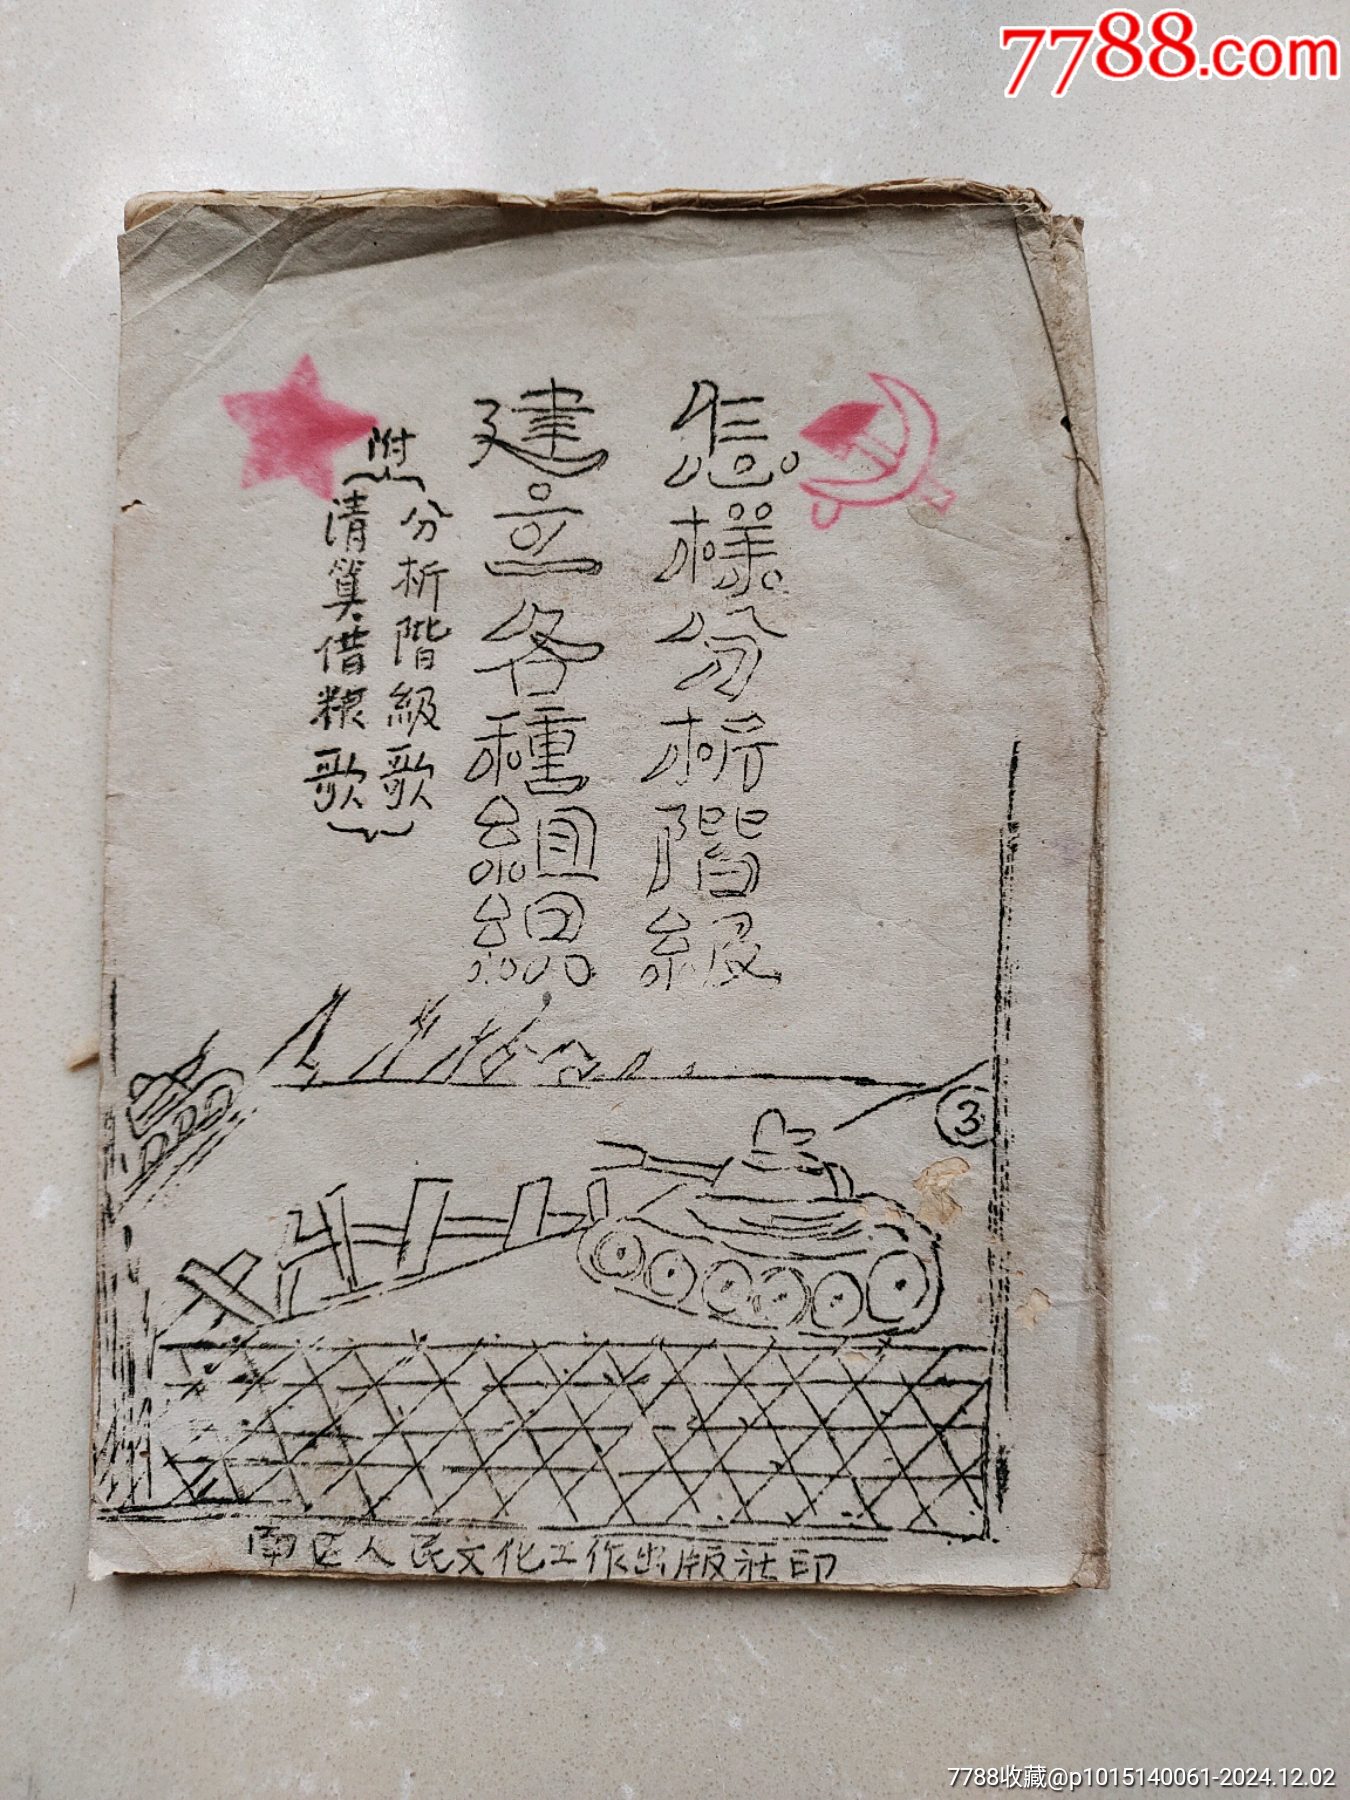 7788.com
怎樣分析階級
建立各種組織
附
分析階級歌
清算借粮歌
3
南区人民文化工作出版社印
7788收藏@p1015140061-2024.12.02